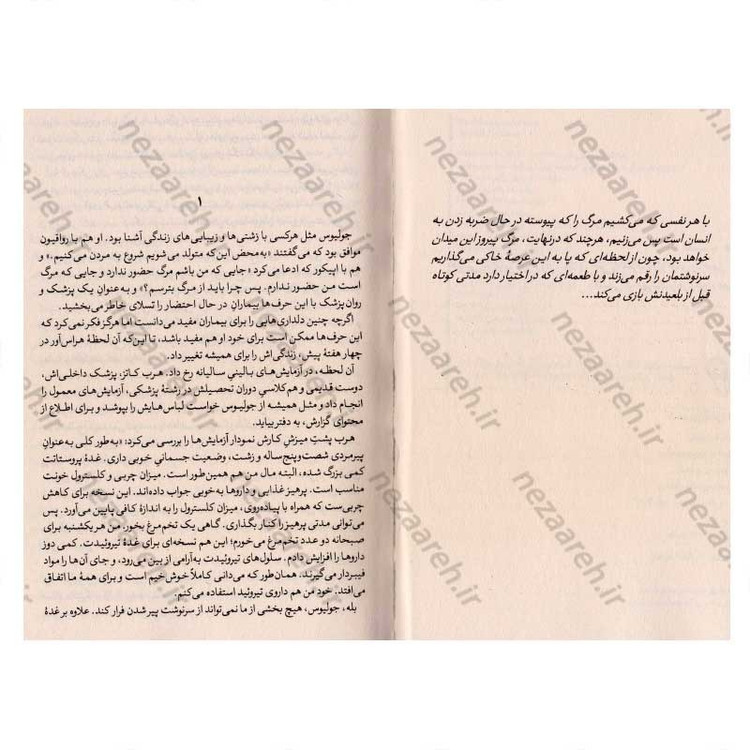 با هر نفسی که می‌کشیم مرگ را که پیوسته در حال ضربه زدن به
انسان است پس می‌زنیم، هرچند که درنهایت، مرگ پیروز این میدان
خواهد بود، چون از لحظه‌ای که پا به این عرصهٔ خاکی می‌گذاریم
سرنوشتمان را رقم می‌زند و با طعمه‌ای که در اختیار دارد مدتی کوتاه
قبل از بلعیدنش بازی می‌کند...
۱
جولیوس مثل هرکسی با زشتی‌ها و زیبایی‌های زندگی آشنا بود. او هم با رواقیون
موافق بود که می‌گفتند «به‌محض این‌که متولد می‌شویم شروع به مردن می‌کنیم.» و
هم با اپیکور که ادعا می‌کرد «جایی که من باشم مرگ حضور ندارد و جایی که مرگ
است من حضور ندارم. پس چرا باید از مرگ بترسم؟» و به‌عنوانِ یک پزشک و
روان‌پزشک با این حرف‌ها بیمارانِ در حال احتضار را تسلای خاطر می‌بخشید.
اگرچه چنین دلداری‌هایی را برای بیماران مفید می‌دانست اما هرگز فکر نمی‌کرد که
این حرف‌ها ممکن است برای خود او هم مفید باشد، تا این‌که آن لحظهٔ هراس‌آور در
چهار هفتهٔ پیش، زندگی‌اش را برای همیشه تغییر داد.
آن لحظه، در آزمایش‌های بالینیِ سالیانه رخ داد. هرب کاتز، پزشک داخلی‌اش،
دوست قدیمی و هم‌کلاسیِ دوران تحصیلش در رشتهٔ پزشکی، آزمایش‌های معمول را
انجام داد و مثل همیشه از جولیوس خواست لباس‌هایش را بپوشد و برای اطلاع از
محتوای گزارش، به دفتر بیاید.
هرب پشتِ میزش کارش نمودار آزمایش‌ها را بررسی می‌کرد: «به‌طور کلی به‌عنوانِ
پیرمردی شصت‌و‌پنج‌ساله و زشت، وضعیت جسمانیِ خوبی داری. غدهٔ پروستاتت
کمی بزرگ شده، البته مال من هم همین‌طور است. میزان چربی و کلسترول خونت
مناسب است. پرهیز غذایی و داروها به‌خوبی جواب داده‌اند. این نسخه برای کاهش
چربی‌ست که همراه با پیاده‌روی، میزان کلسترول را به اندازهٔ کافی پایین می‌آورد. پس
می‌توانی مدتی پرهیز را کنار بگذاری. گاهی یک تخم‌مرغ بخور. من هر یکشنبه برای
صبحانه دو عدد تخم‌مرغ می‌خورم؛ این هم نسخه‌ای برای غدهٔ تیروئیدت. کمی دوز
داروها را افزایش دادم. سلول‌های تیروئیدت به‌آرامی از بین می‌رود، و جای آن‌ها را مواد
فیبردار می‌گیرند. همان‌طور که می‌دانی کاملاً خوش‌خیم است و برای همهٔ ما اتفاق
می‌افتد. خود من هم داروی تیروئید استفاده می‌کنم.
بله، جولیوس، هیچ بخشی از ما نمی‌تواند از سرنوشت پیر شدن فرار کند. علاوه بر غدهٔ
nezaareh.ir
nezaareh.ir
nezaareh.ir
nezaareh.ir
nezaareh.ir
nezaareh.ir
nezaareh.ir
nezaareh.ir
nezaareh.ir